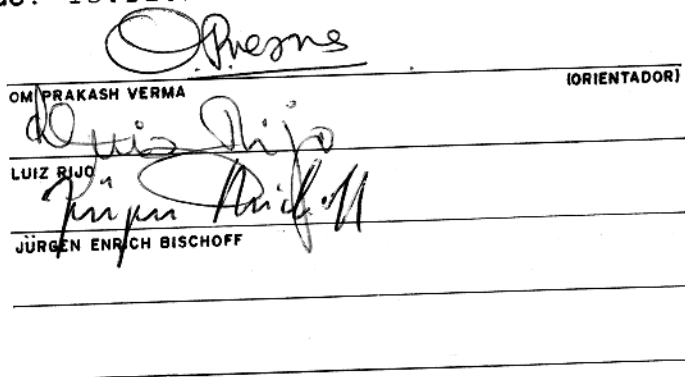 OM PRAKASH VERMA (ORIENTADOR)
Luiz Rijo
LUIZ RIJO
JÜRGEN ENRICH BISCHOFF